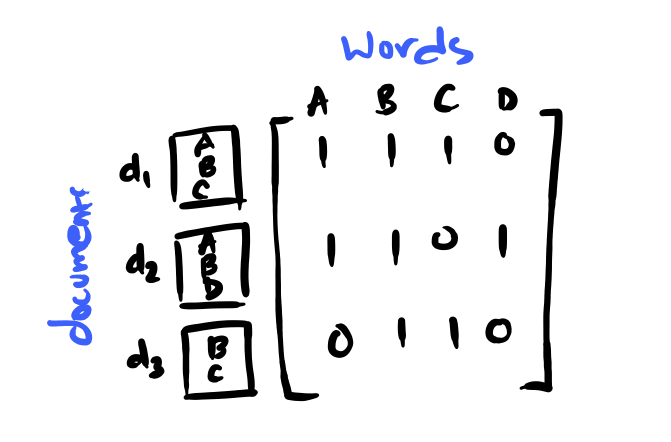 Words
A B C D
documents
d1 A B C 1 1 1 0
d2 A B D 1 1 0 1
d3 B C 0 1 1 0